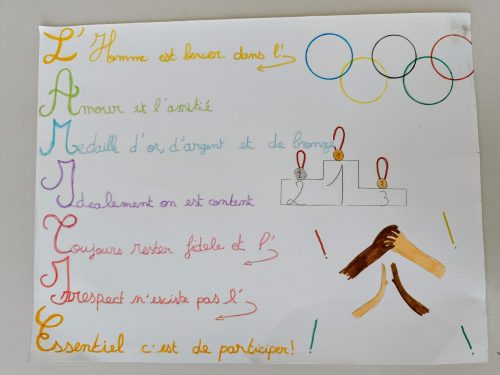 L'Homme est bercer dans l'
Amour et l'amitié
Medaille d'or, d'argent et de bronze
Idealement on est content
Toujours rester fidele et l'
Irrespect n'existe pas l'
Essentiel c'est de participer!
1
2
3
1
2
3